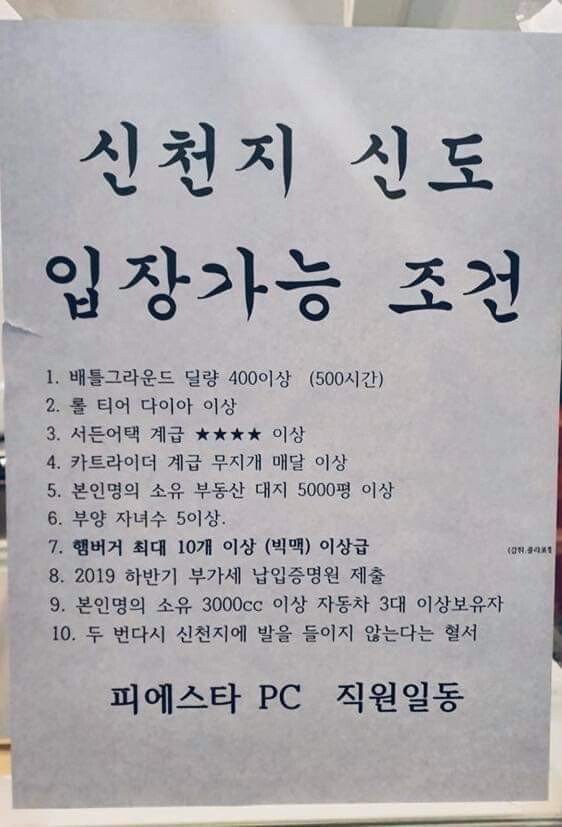 신천지 신도
입장가능 조건
1. 배틀그라운드 딜량 400이상 (500시간)
2. 롤 티어 다이아 이상
3. 서든어택 계급 ★★★★ 이상
4. 카트라이더 계급 무지개 매달 이상
5. 본인명의 소유 부동산 대지 5000평 이상
6. 부양 자녀수 5이상.
7. 햄버거 최대 10개 이상 (빅맥) 이상급
8. 2019 하반기 부가세 납입증명원 제출
9. 본인명의 소유 3000cc 이상 자동차 3대 이상보유자
10. 두 번다시 신천지에 발을 들이지 않는다는 혈서
피에스타 PC 직원일동